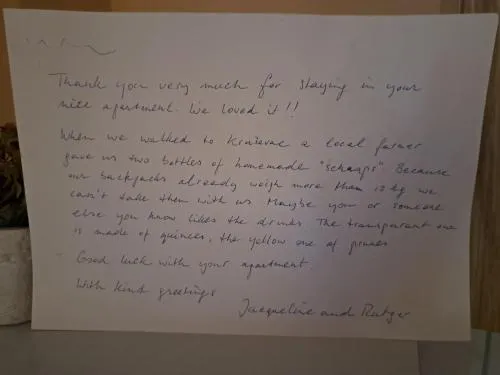 Thank you very much for staying in your
nice apartment. We loved it!!
When we walked to Kraževac a local farmer
gave us two bottles of homemade "schnaps" Because
our backpacks already weigh more than 12 kg we
can't take them with us Maybe you or someone
else you know likes the drinks The transparant one
is made of quinces, the yellow one of prunes
Good luck with your apartment.
With kind greetings
Jacqueline and Rutger